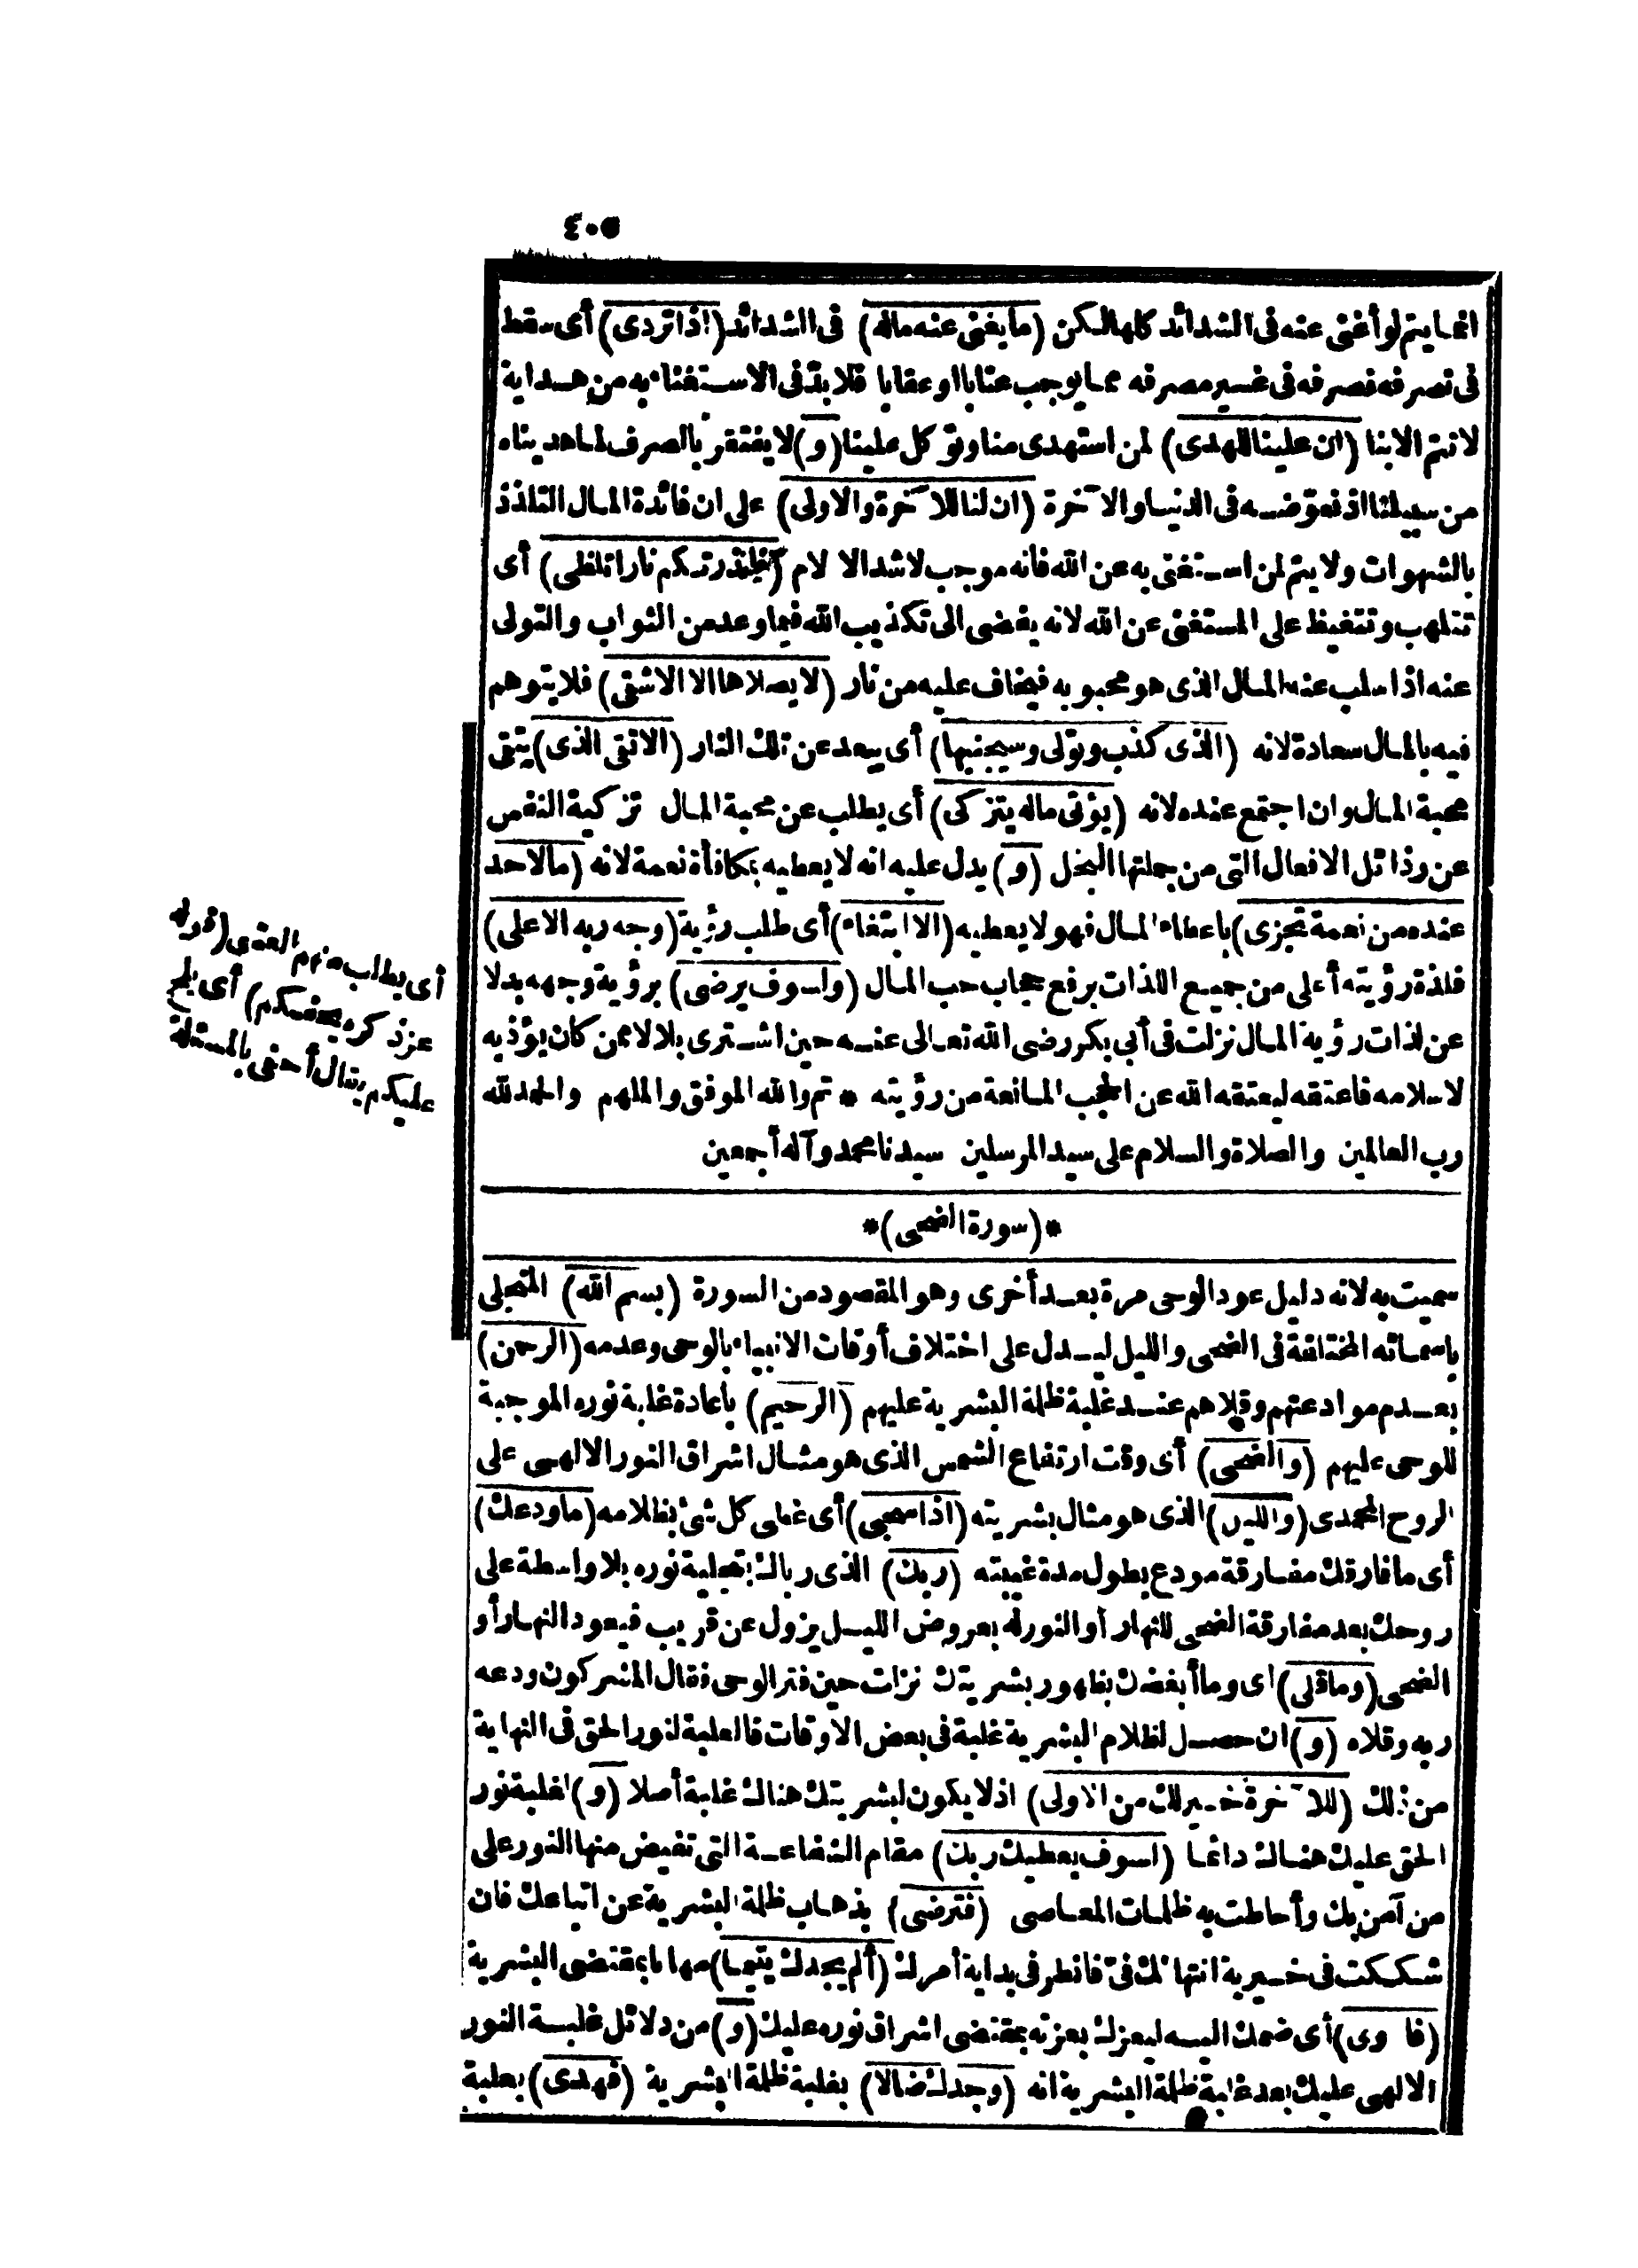 ٤٠٥
انما يتم لو أغنى عنه فى الشدائد كلها لكن (ما يغنى عنه ماله) فى الشدائد (اذا تردى) أى سقط
فى تصرفه فصرفه فى غير مصرفه مما يوجب عتابا او عقابا فلا بد فى الاستغناء به من هداية
لا تتم الا بنا (ان علينا للهدى) لمن استهدى منا وتوكل علينا (و) لا يفتقر بالصرف لما هديناه
من سبيلنا اذ نعوّضه فى الدنيا والآخرة (ان لنا للآخرة والاولى) على ان فائدة المال التلذذ
بالشهوات ولا يتم لمن استغنى به عن الله فانه موجب لاشد الآلام (فانذرتكم نارا تلظى) أى
تتلهب وتتغيظ على المستغنى عن الله لانه يفضى الى تكذيب الله فيما وعد من الثواب والتولى
عنه اذا سلب عنه المال الذى هو محبوبه فيخاف عليه من نار (لا يصلاها الا الاشقى) فلا يتوهم
فيه بالمال سعادة لانه (الذى كذب وتولى وسيجنبها) أى يبعد عن تلك النار (الاتقى الذى) يتقى
محبة المال وان اجتمع عنده لانه (يؤتى ماله يتزكى) أى يطلب عن محبة المال تزكية النفس
عن رذائل الافعال التى من جملتها البخل (و) يدل عليه انه لا يعطيه بمكافأة نعمة لانه (ما لاحد
عنده من نعمة تجزى) باعطاء المال فهو لا يعطيه (الا ابتغاء) أى طلب رؤية (وجه ربه الاعلى)
فلذة رؤيته أعلى من جميع اللذات برفع حجاب حب المال (ولسوف يرضى) برؤية وجهه بدلا
عن لذات رؤية المال نزلت فى أبى بكر رضى الله تعالى عنه حين اشترى بلالا ممن كان يؤذيه
لاسلامه فاعتقه ليعتقه الله عن الحجب المانعة من رؤيته * تم والله الموفق والملهم والحمد لله
رب العالمين والصلاة والسلام على سيد المرسلين سيدنا محمد وآله أجمعين
أى يطلب منهم العفو (قوله
عز ذكره يحفكم) أى يلح
عليكم يقال أحفى بالمسئلة
*(سورة الضحى)*
سميت به لانه دليل عود الوحى مرة بعد أخرى وهو المقصود من السورة (بسم الله) المتجلى
باسمائه المختلفة فى الضحى والليل ليدل على اختلاف أوقات الانبياء بالوحى وعدمه (الرحمن)
بعدم موادعتهم وقلاهم عند غلبة ظلمة البشرية عليهم (الرحيم) باعادة غلبة نوره الموجبة
للوحى عليهم (والضحى) أى وقت ارتفاع الشمس الذى هو مثال اشراق النور الالهى على
الروح المحمدى (والليل) الذى هو مثال بشريته (اذا سجى) أى غطى كل شئ بظلامه (ما ودعك)
أى ما فارقك مفارقة مودع بطول مدة غيبته (ربك) الذى رباك بتجلية نوره بلا واسطة على
روحك بعد مفارقة الضحى للنهار أو النور له بعروض الليل يزول عن قريب فيعود النهار أو
الضحى (وما قلى) اى وما أبغضك بظهور بشريتك نزلت حين فتر الوحى فقال المشركون ودعه
ربه وقلاه (و) ان حصل لظلام البشرية غلبة فى بعض الاوقات فالغلبة لنور الحق فى النهاية
من ذلك (للآخرة خير لك من الاولى) اذ لا يكون لبشريتك هناك غلبة أصلا (و) لغلبة نور
الحق عليك هناك دائما (لسوف يعطيك ربك) مقام الشفاعة التى تفيض منها النور على
من آمن بك وأحاطت به ظلمات المعاصى (فترضى) بذهاب ظلمة البشرية عن اتباعك فان
شككت فى خيرية انتهائك فىّ فانظر فى بداية أمرك (ألم يجدك يتيما) مهانا بمقتضى البشرية
(فآوى) أى ضمك اليه ليعزك بعزته بمقتضى اشراق نوره عليك (و) من دلائل غلبة النور
الالهى عليك بعد غلبة ظلمة البشرية انه (وجدك ضالا) بغلبة ظلمة البشرية (فهدى) بغلبة